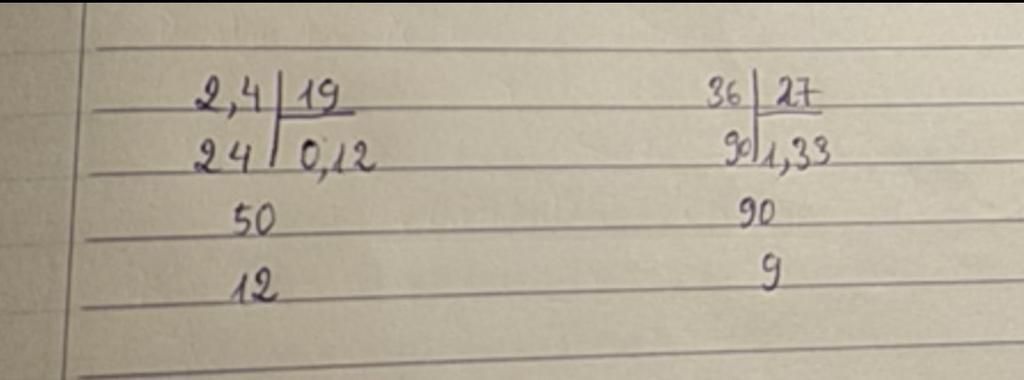 2,4 | 19 36 | 27
24 | 0,12 90 | 1,33
50 90
12 9